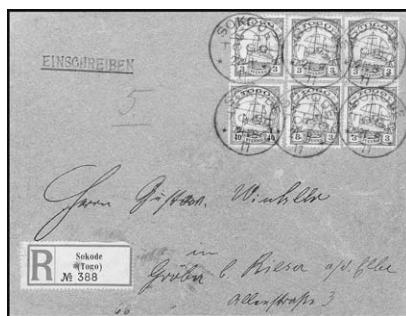 EINSCHREIBEN
SOKODE
TOGO
TOGO
TOGO
5
SOKODE
TOGO
TOGO
TOGO
40 40
3 3
3 3
Herrn Gustav. Winkler
in
Gröba b. Riesa a/d. Elbe
Allenstraße 3
R
Sokode
(Togo)
№ 388